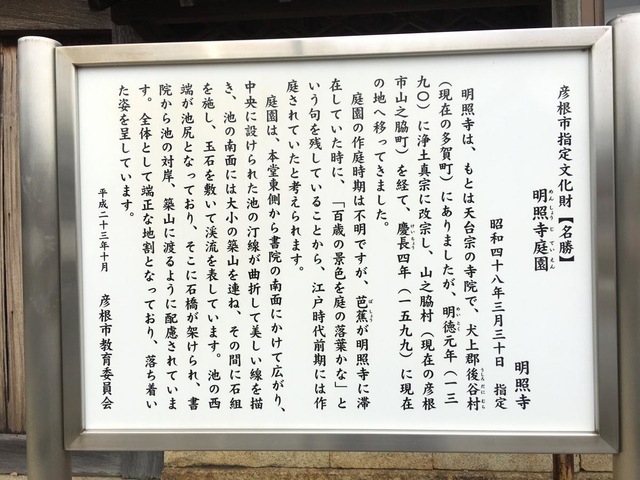 彦根市指定文化財【名勝】
明照寺庭園
めんしょうじていえん
明照寺
昭和四十八年三月三十日 指定
明照寺は、もとは天台宗の寺院で、犬上郡後谷村
うしろだにむら
(現在の多賀町)にありましたが、明徳元年(一三
めいとく
九〇)に浄土真宗に改宗し、山之脇村(現在の彦根
市山之脇町)を経て、慶長四年(一五九九)に現在
けいちょう
の地へ移ってきました。
庭園の作庭時期は不明ですが、芭蕉が明照寺に滞
ばしょう
在していた時に、「百歳の景色を庭の落葉かな」と
いう句を残していることから、江戸時代前期には作
庭されていたと考えられます。
庭園は、本堂東側から書院の南面にかけて広がり、
中央に設けられた池の汀線が曲折して美しい線を描
き、池の南面には大小の築山を連ね、その間に石組
を施し、玉石を敷いて渓流を表しています。池の西
端が池尻となっており、そこに石橋が架けられ、書
院から池の対岸、築山に渡るように配慮されていま
す。全体として端正な地割となっており、落ち着い
た姿を呈しています。
平成二十三年十月 彦根市教育委員会